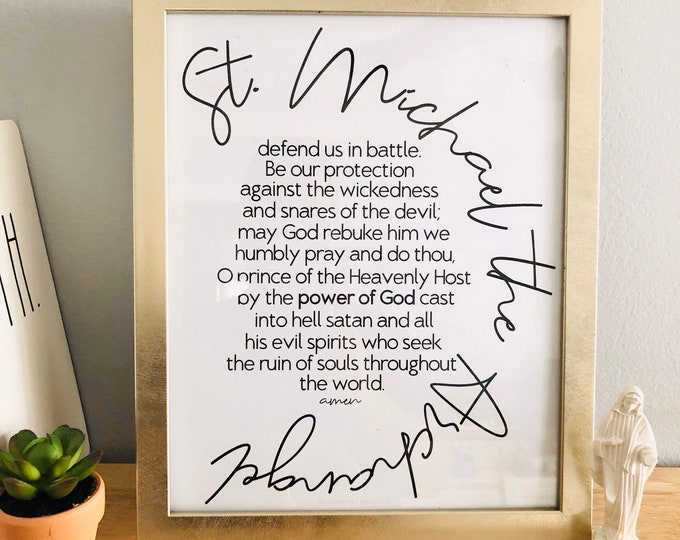 St. Michael the Archangel
defend us in battle.
Be our protection
against the wickedness
and snares of the devil;
may God rebuke him we
humbly pray and do thou,
O prince of the Heavenly Host
by the power of God cast
into hell satan and all
his evil spirits who seek
the ruin of souls throughout
the world.
amen
H.